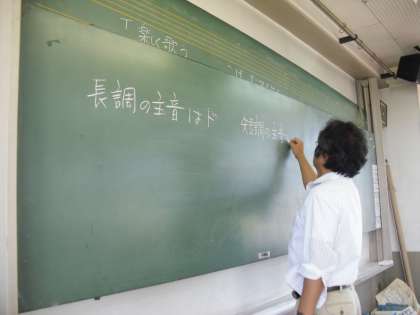 T 楽しく歌う
長調の主音はド
短調の主音